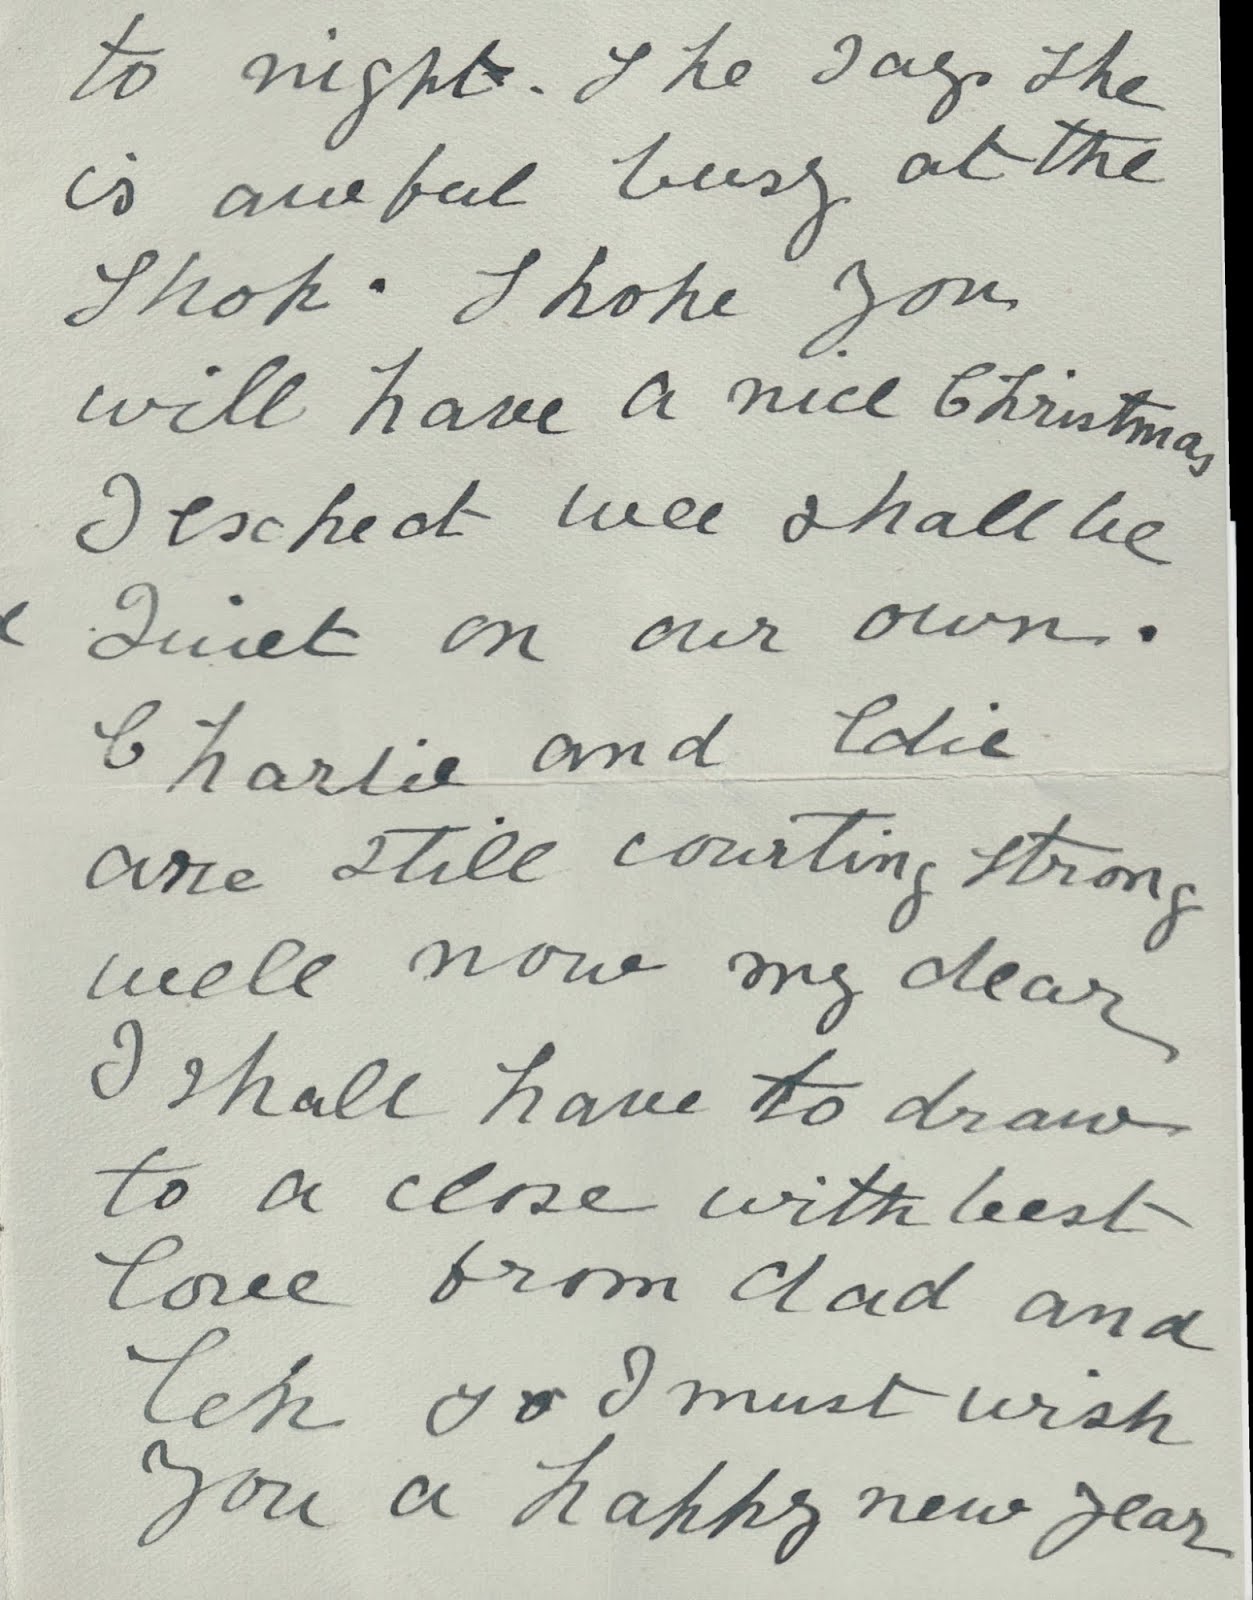 to night. She says she
is aweful busy at the
Shop. I hope you
will have a nice Christmas
I escpect wee shall be
Quiet on our own.
Charlie and Edie
are still courting strong
well now my dear
I shall have to draw
to a close with best
love from dad and
so I must wish
you a happy new year